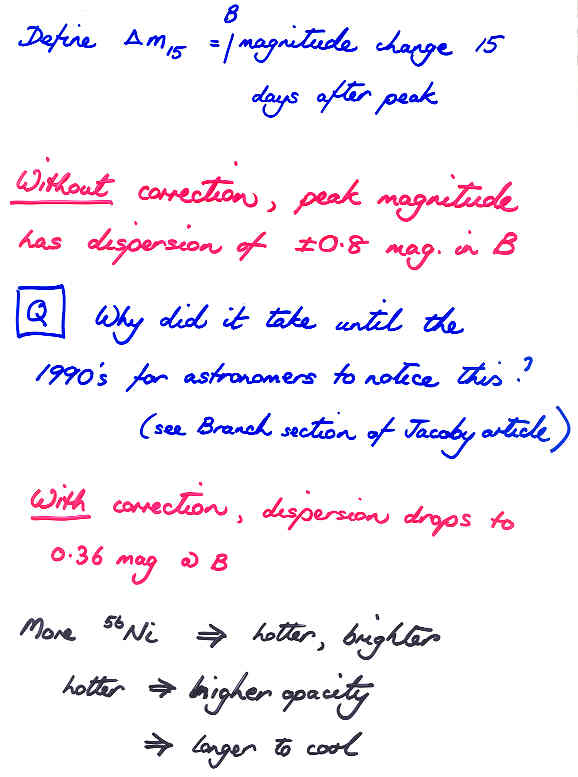 Define Δm₁₅ = B magnitude change 15
days after peak
Without correction, peak magnitude
has dispersion of ±0.8 mag. in B
Q Why did it take until the
1990's for astronomers to notice this?
(see Branch section of Jacoby article)
With correction, dispersion drops to
0.36 mag @ B
More ⁵⁶Ni ⇒ hotter, brighter
hotter ⇒ higher opacity
⇒ longer to cool